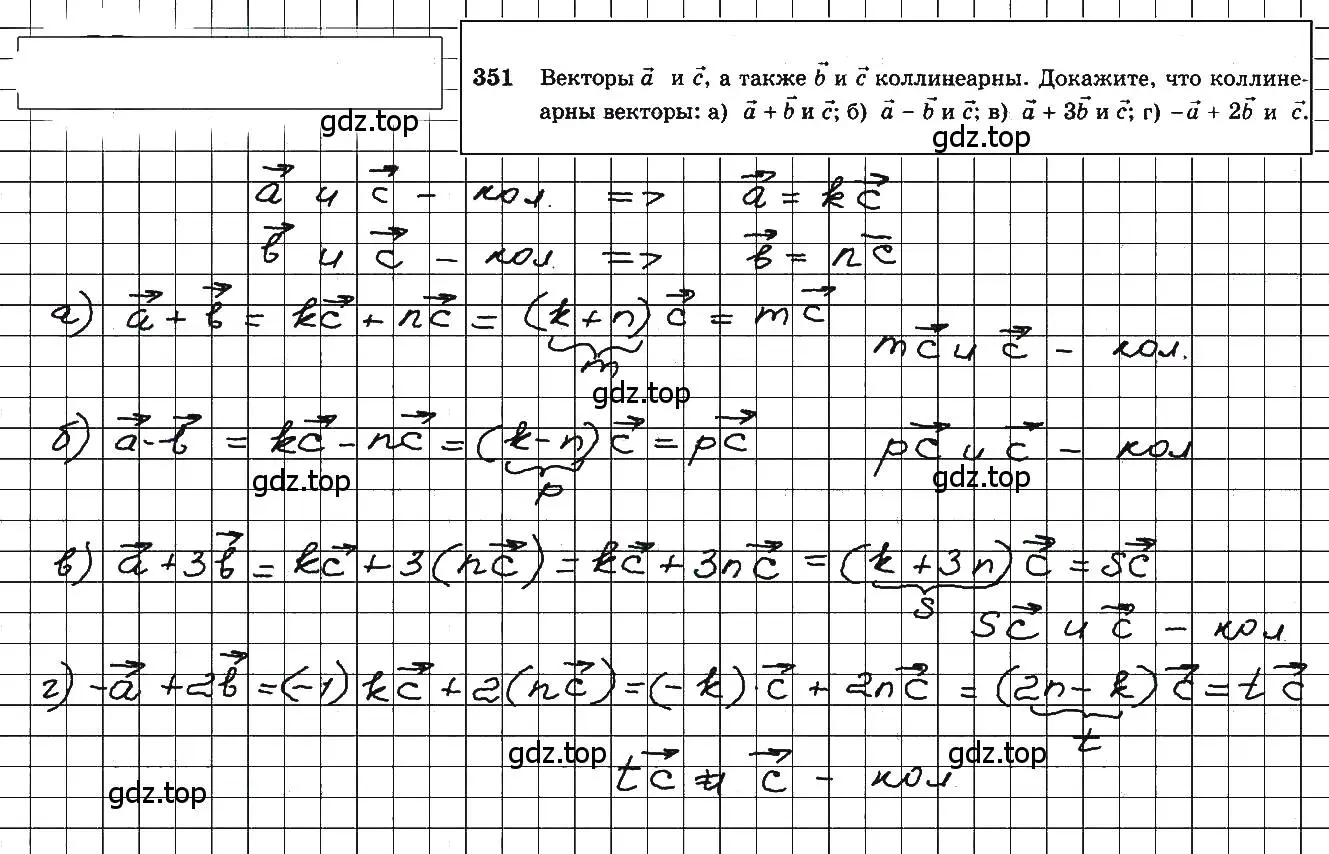 351 Векторы a⃗ и c⃗, а также b⃗ и c⃗ коллинеарны. Докажите, что коллине-
арны векторы: а) a⃗ + b⃗ и c⃗; б) a⃗ − b⃗ и c⃗; в) a⃗ + 3b⃗ и c⃗; г) −a⃗ + 2b⃗ и c⃗.
gdz.top
gdz.top
a⃗ и c⃗ - кол. => a⃗ = kc⃗
b⃗ и c⃗ - кол. => b⃗ = nc⃗
а) a⃗ + b⃗ = kc⃗ + nc⃗ = (k+n)c⃗ = mc⃗
m
mc⃗ и c⃗ - кол.
gdz.top
б) a⃗ - b⃗ = kc⃗ - nc⃗ = (k-n)c⃗ = pc⃗
p
pc⃗ и c⃗ - кол
gdz.top
gdz.top
в) a⃗ + 3b⃗ = kc⃗ + 3(nc⃗) = kc⃗ + 3nc⃗ = (k + 3n)c⃗ = sc⃗
s
sc⃗ и c⃗ - кол.
г) -a⃗ + 2b⃗ = (-1)kc⃗ + 2(nc⃗) = (-k)·c⃗ + 2nc⃗ = (2n-k)c⃗ = tc⃗
t
gdz.top
gdz.top
tc⃗ и c⃗ - кол
gdz.top